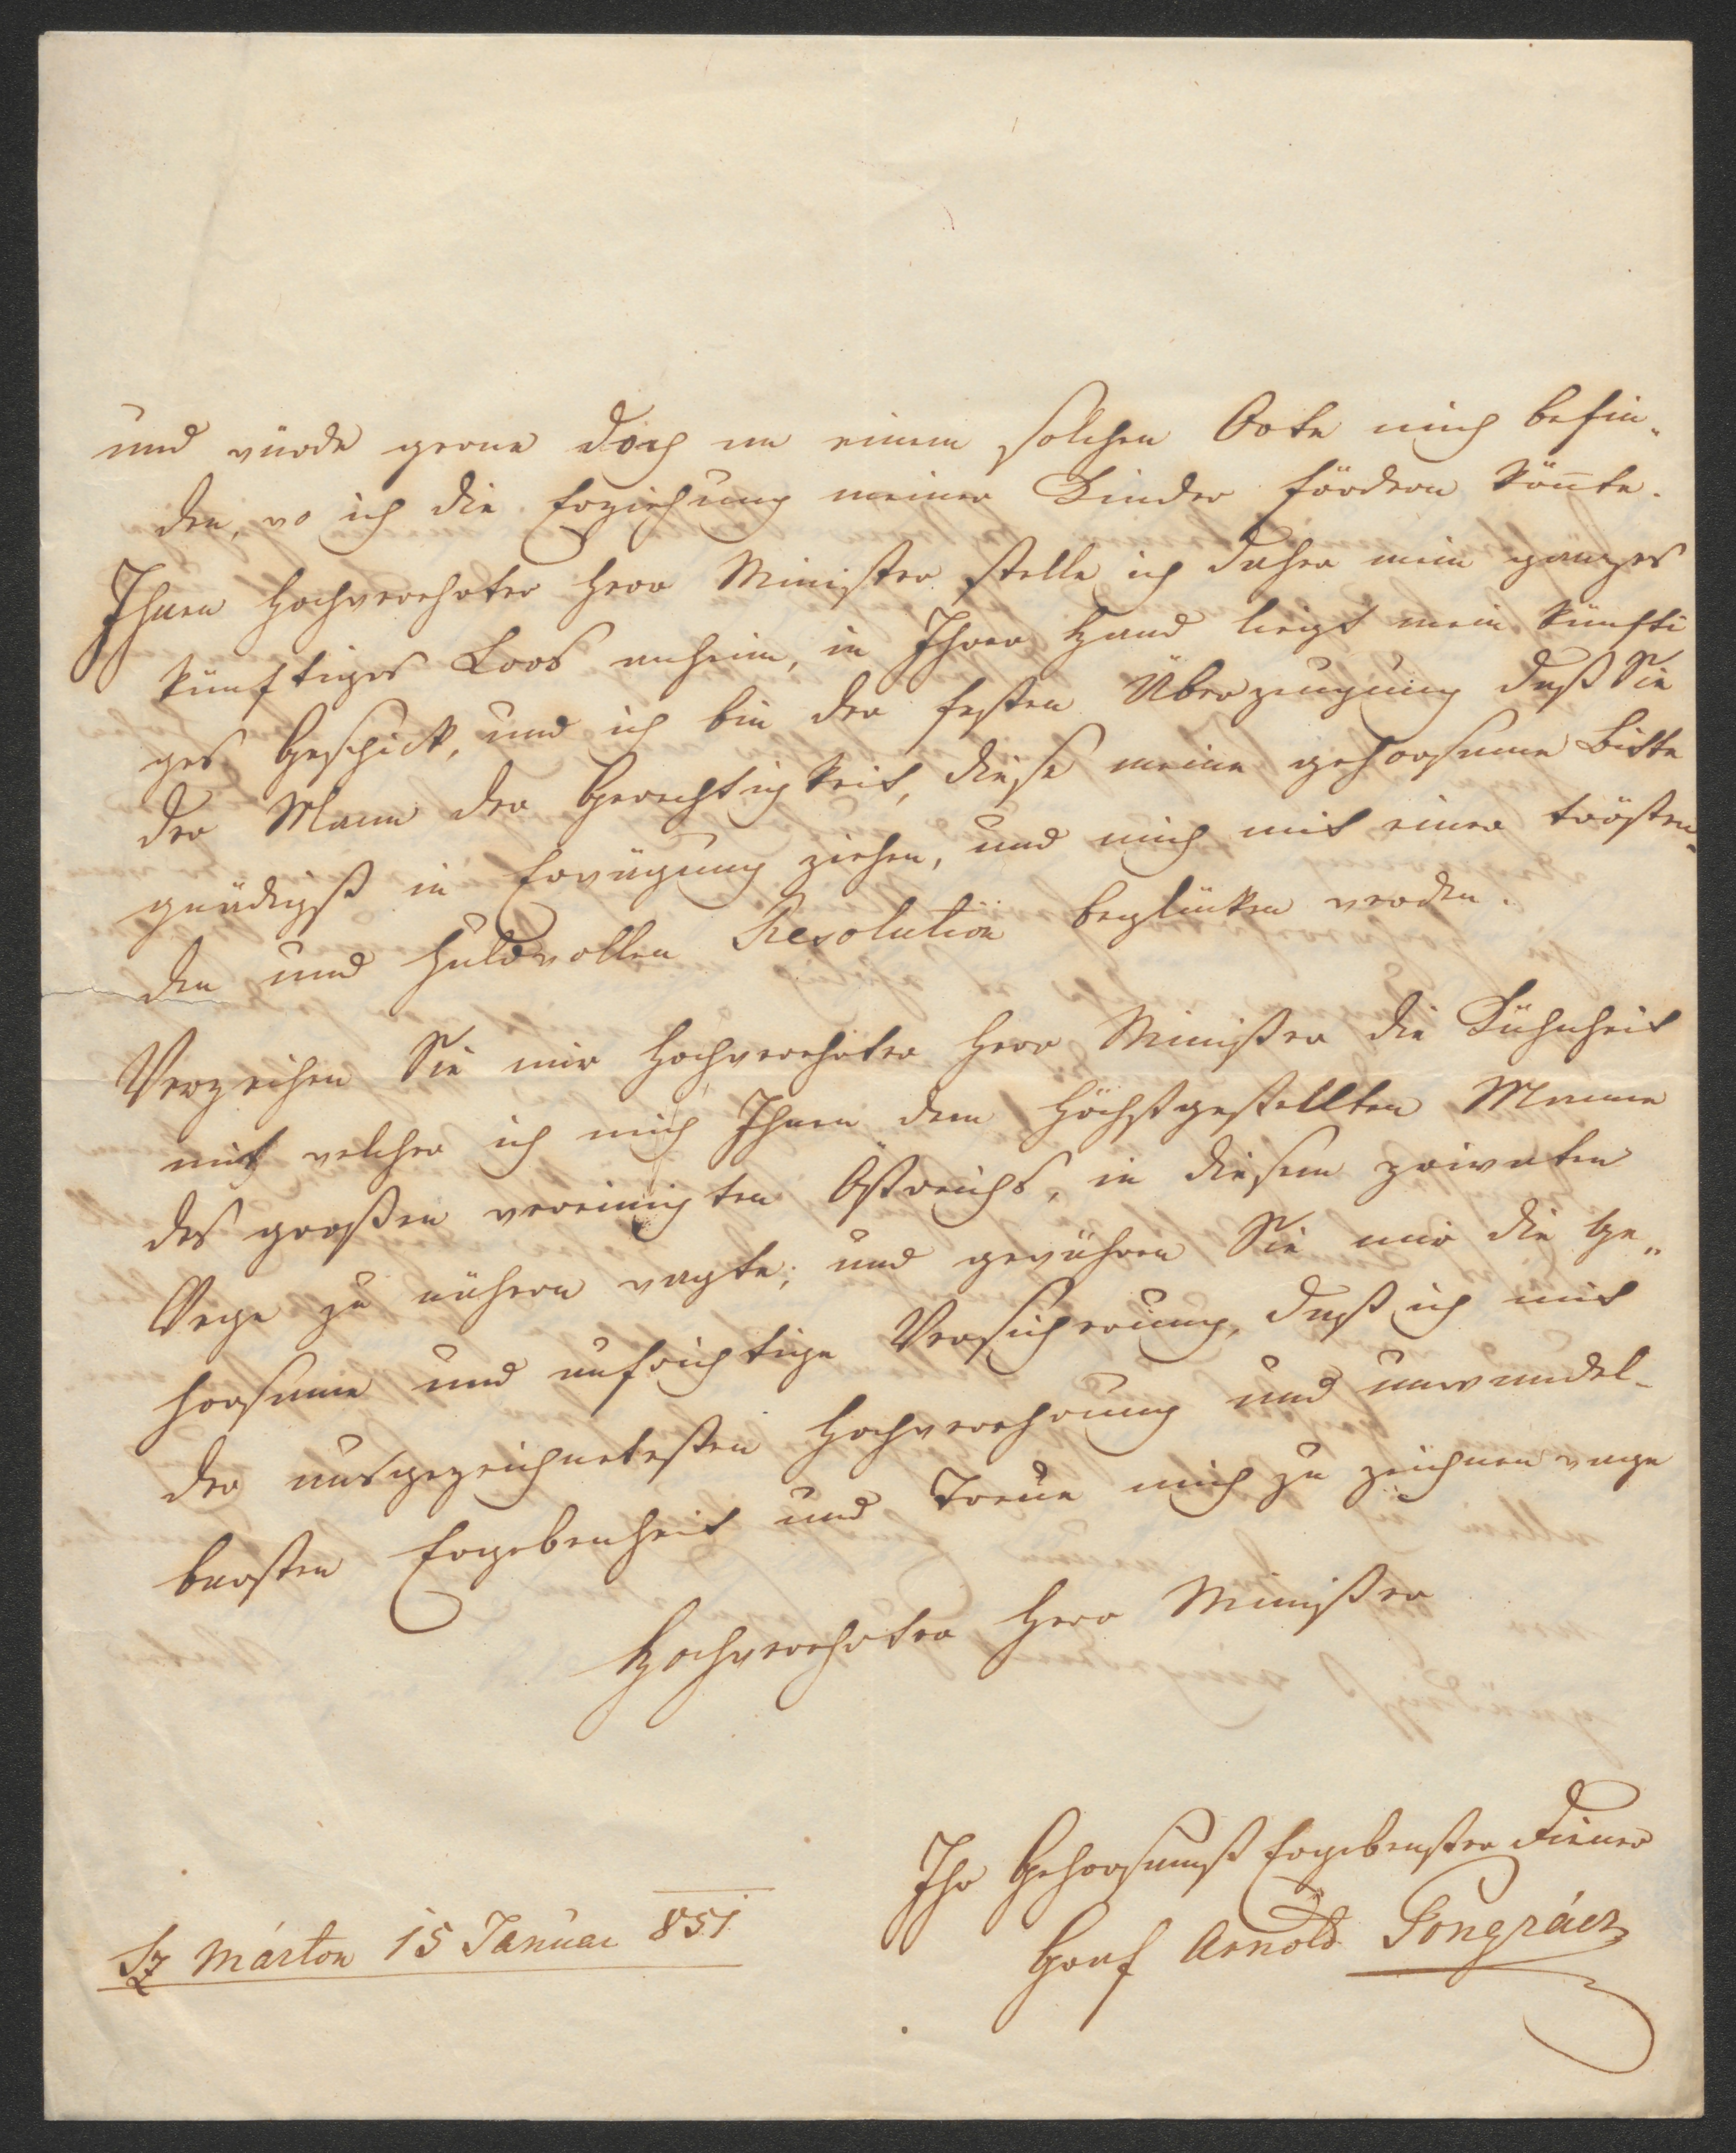 und würde gerne doch an einem solchen Orte mich befin-
den, wo ich die Erziehung meiner Kinder fördern könte.
Ihnen Hochverehrter Herr Minister stelle ich daher mein ganzes
künftiges Loos anheim, in Ihrer Hand liegt mein künfti
ges Geschick, und ich bin der festen Überzeugung daß Sie
der Mann der Gerechtigkeit, diese meine gehorsame Bitte
gnädigst in Erwägung ziehen, und mich mit einer trösten-
den und huldvollen Resolution beglücken werden.
Verzeihen Sie mir Hochverehrter Herr Minister die Kühnheit
mit welcher ich mich Ihnen dem Höchstgestellten Manne
des großen vereinigten Östreichs, in diesem privaten
Wege zu nähern wagte; und gewähren Sie mir die Ge„
horsame und aufrichtige Versicherung, daß ich mit
der ausgezeichnetesten Hochverehrung und unwandel-
barsten Ergebenheit und Treue mich zu zeichnen wage
Hochverehrter Herr Minister
Ihr Gehorsamst Ergebenster Diener
Graf Arnold Pongrácz
Sz Márton 15 Januar 851